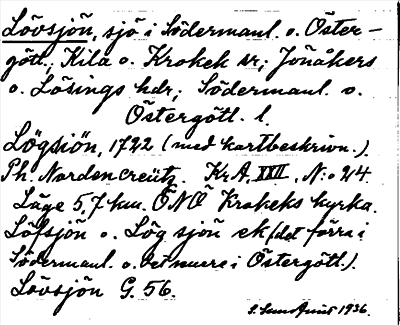 Lövsjön, sjö i Södermanl. o. Öster-
götl.; Kila o. Krokek sr; Jönåkers
o. Lösings hdr; Södermanl. o.
Östergötl. l.
Lögsiön, 1722 (med kartbeskrivn.).
Ph. Nordencreütz. Kr.A. XXII, N:o 24.
Läge 5,7 km. ÖNÖ Krokeks kyrka.
Löfsjön o. Lögsjön ek (det förra i
Södermanl. o. det senare i Östergötl.).
Lövsjön G. 56.
1936.